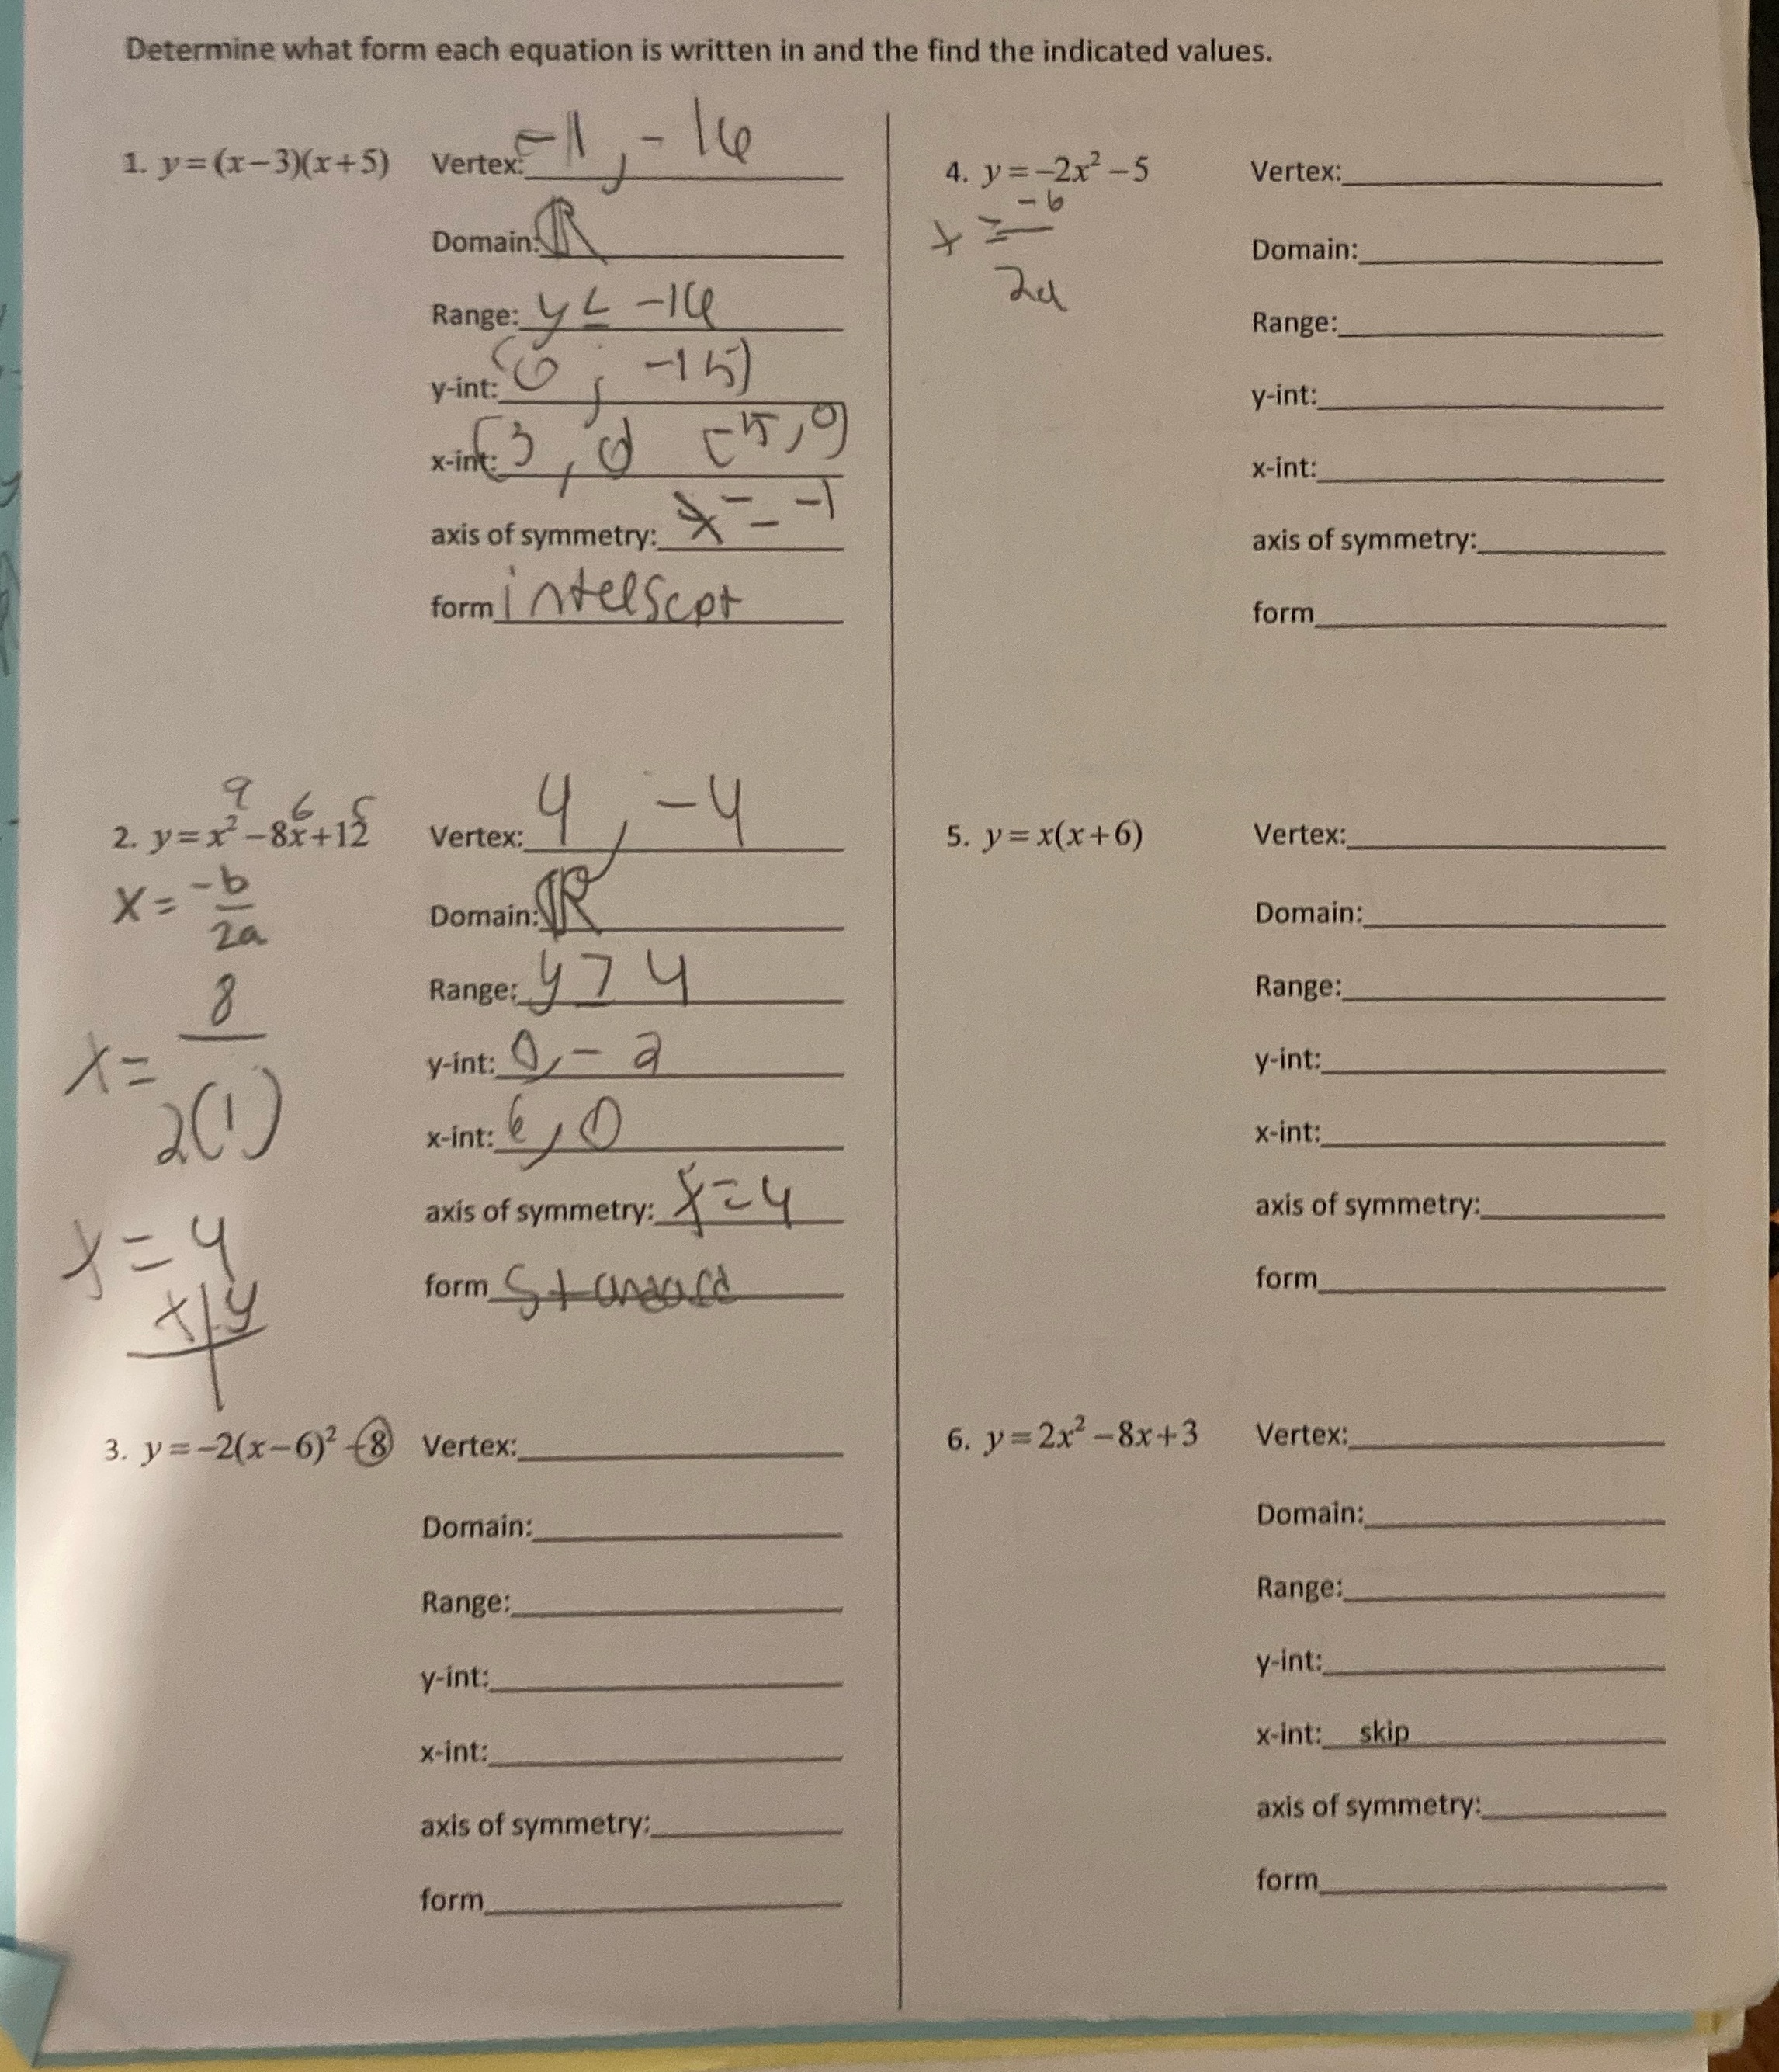 Determine what form each equation is written in and the find the indicated values.
1. y=(x−3)(x+5) Vertex: −1, −16
Domain: ℝ
Range: y ≤ −16
y-int: (0, −15)
x-int: (3, 0) (−5, 0)
axis of symmetry: x = −1
form interscpt
9 6 c
2. y=x²−8x+12 Vertex: 4, −4
x = −b/2a
Domain: ℝ
8
Range: y ≥ 4
x = 2(1)
y-int: 0, −2
x-int: 6, 0
axis of symmetry: x=4
x = 4
form Standard
x|y
3. y=−2(x−6)²+8 Vertex:
Domain:
Range:
y-int:
x-int:
axis of symmetry:
form
4. y=−2x²−5 Vertex:
x = −b/2a
Domain:
Range:
y-int:
x-int:
axis of symmetry:
form
5. y=x(x+6) Vertex:
Domain:
Range:
y-int:
x-int:
axis of symmetry:
form
6. y=2x²−8x+3 Vertex:
Domain:
Range:
y-int:
x-int: skip
axis of symmetry:
form